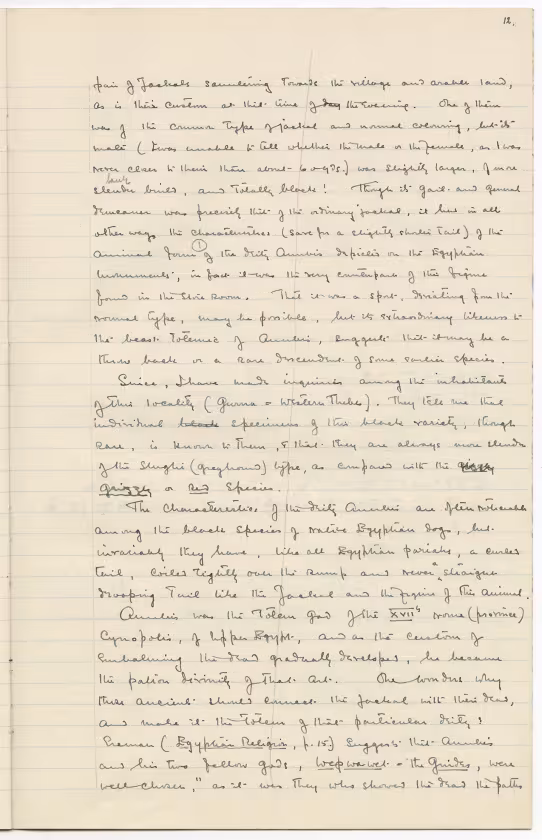 12.
pair of Jackals sauntering towards the village and arable land,
as is their custom at that time of day the evening. One of them
was of the common type of jackal and normal colouring, but its
mate (I was unable to tell whether the male or the female, as I was
never close to them than about 60 yds.) was slightly larger, of more
lank
slender build, and totally black! Though its gait and general
demeanor was precisely that of the ordinary jackal, it had in all
other ways the characteristics (save for a slightly shorter tail) of the
animal form (1) of the deity Anubis depicted on the Egyptian
monuments, in fact it was the very counterpart of this figure
found in the Store Room. That it was a sport, deviating from the
normal type, may be possible, but its extraordinary likeness to
the beast totemic of Anubis, suggests that it may be a
throw back or a rare descendent of some earlier species.
Since, I have made inquiries among the inhabitants
of this locality (Gurna = Western Thebes). They tell me that
individual black specimens of this black variety, though
rare, is known to them, & that they are always more slender
of the Slughi (greyhound) type, as compared with the
grizzly or red species.
The characteristics of the deity Anubis are often noticeable
among the black species of native Egyptian dogs, but
invariably they have, like all Egyptian pariahs, a curled
tail, coiled tightly over the rump and never a straight
drooping tail like the Jackal and the figure of this animal.
Anubis was the Totem God of the XVIIth nome (province)
Cynopolis, of Upper Egypt, and as the custom of
embalming the dead gradually developed, he became
the patron divinity of that art. One wonders why
these ancients should connect the jackal with their dead,
and make it the totem of that particular deity?
Erman (Egyptian Religion, p. 15) suggests that Anubis
and his two fellow gods, Wepwawet = the Guides, were
well chosen," as it was they who showed the dead the paths